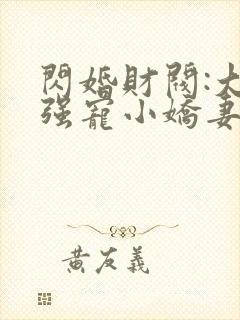 閃婚財閥:大
强寵小嬌妻
黃友義